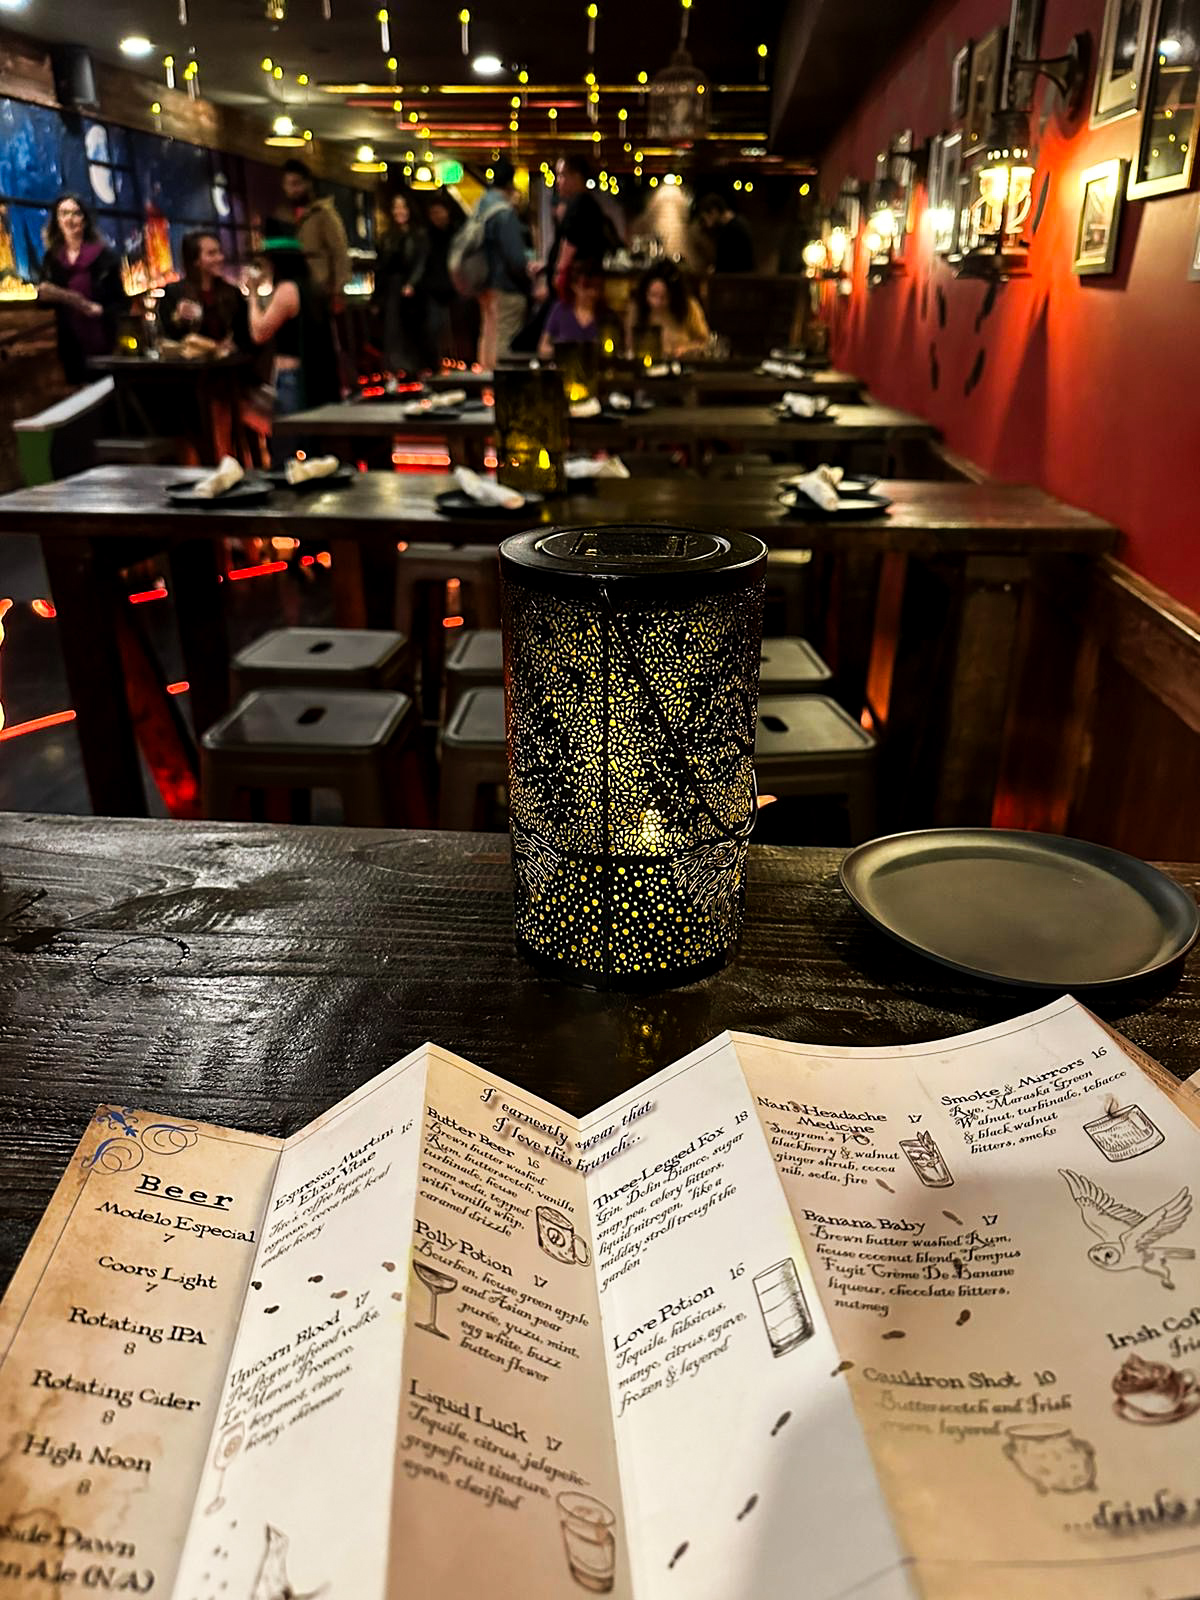 Beer
Modelo Especial
7
Coors Light
7
Rotating IPA
8
Rotating Cider
8
High Noon
8
Dawn
Ale (N.A)
Espresso Martini 16
Elixir Vitae
coffee liqueur,
espresso, cocoa nib,
honey
Unicorn Blood 17
Tea flower infused vodka,
La Marca Prosecco,
bergamot, citrus,
honey, shimmer
I earnestly swear that
I love this brunch...
Butter Beer 16
Brown butter washed
Rum, butterscotch, vanilla
turbinade, house
cream soda, topped
with vanilla whip,
caramel drizzle
Polly Potion 17
Bourbon, house green apple
and Asian pear
purée, yuzu, mint,
egg white, buzz
button flower
Liquid Luck 17
Tequila, citrus, jalapeño
grapefruit tincture,
agave, clarified
Three-Legged Fox 18
Gin, Dolin Bianco, sugar
snap pea, celery bitters,
liquid nitrogen, "like a
midday stroll trough the
garden"
Love Potion 16
Tequila, hibiscus,
mango, citrus, agave,
frozen & layered
Nan's Headache 17
Medicine
Seagram's VO,
blackberry & walnut
ginger shrub, cocoa
nib, soda, fire
Banana Baby 17
Brown butter washed Rum,
house coconut blend, Tempus
Fugit Crème De Banane
liqueur, chocolate bitters,
nutmeg
Cauldron Shot 10
Butterscotch and Irish
cream, layered
Smoke & Mirrors 16
Rye, Maraska Green
Walnut, turbinade, tobacco
& black walnut
bitters, smoke
Irish
...drinks